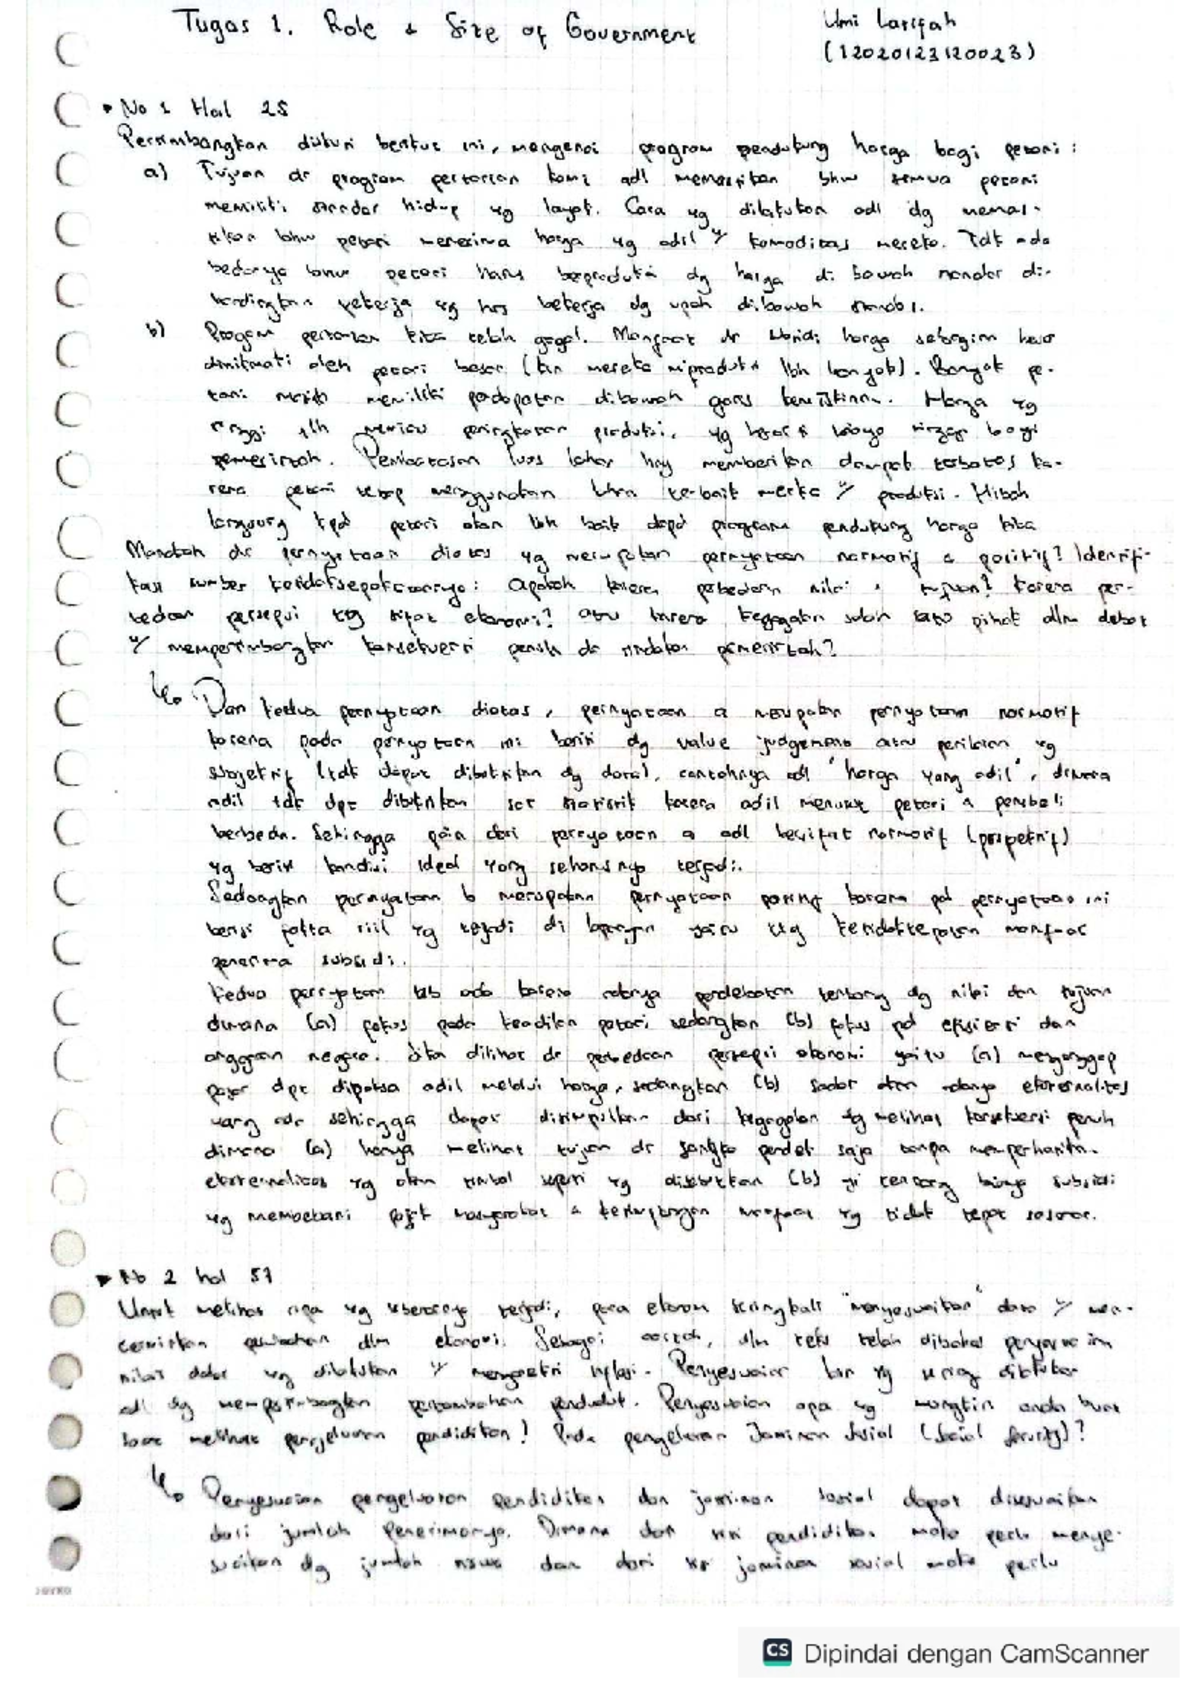 Tugas 1. Role & Size of Government
Umi Latifah
(12020123120023)
No 1 Hal 25
Pertimbangkan diskusi berikut ini, mengenai program pendukung harga bagi petani :
a) Tujuan dr program pertanian kami adl memastikan bhw semua petani
memiliki standar hidup yg layak. Cara yg dilakukan adl dg memas-
tikan bhw petani menerima harga yg adil u/ komoditas mereka. Tdk ada
bedanya bhw petani harus berproduksi dg harga di bawah standar di-
bandingkan pekerja yg hrs bekerja dg upah dibawah standar.
b) Progam pertanian kita telah gagal. Manfaat dr subsidi harga sebagian besar
dinikmati oleh petani besar (krn mereka mproduksi lbh banyak). Banyak pe-
tani masih memiliki pendapatan dibawah garis kemiskinan. Harga yg
tinggi tlh memicu peningkatan produksi, yg berarti biaya tinggi bagi
pemerintah. Pembatasan luas lahan hny memberikan dampak terbatas ka-
rena petani tetap menggunakan lahan terbaik mereka u/ produksi. Hibah
langsung kpd petani akan lbh baik dapd program pendukung harga kita
Manakah dr pernyataan diatas yg merupakan pernyataan normatif & positif? Identifi-
kasi sumber ketidaksepakatannya: apakah karena perbedaan nilai & tujuan? karena per-
bedaan persepsi ttg sifat ekonomi? atau karena kegagalan salah satu pihak dlm debat
u/ mempertimbangkan konsekuensi penuh dr tindakan pemerintah?
Dari kedua pernyataan diatas, pernyataan a merupakan pernyataan normatif
karena pada pernyataan ini berisi dg value judgement atau penilaian yg
subjektif (tdk dapat dibuktikan dg data), contohnya adl "harga yang adil", dimana
adil tdk dpt dibuktikan scr statistik karena adil menurut petani & pembeli
berbeda. Sehingga poin dari pernyataan a adl bersifat normatif
yg berisi kondisi ideal yang seharusnya terjadi.
Sedangkan pernyataan b merupakan pernyataan positif karena pd pernyataan ini
berisi fakta riil yg terjadi di lapangan yaitu ttg ketidaktepatan manfaat
penerima subsidi.
Kedua pernyataan tsb ada karena adanya perdebatan tentang dg nilai dan tujuan
dimana (a) fokus pada keadilan petani sedangkan (b) fokus pd efisiensi dan
anggaran negara. Jika dilihat dr perbedaan persepsi ekonomi yaitu (a) menganggap
pasar dpt dipaksa adil melalui harga, sedangkan (b) sadar akan adanya eksternalitas
yang ada sehingga dapat disimpulkan dari kegagalan dg melihat konsekuensi penuh
dimana (a) hanya melihat tujuan dr jangka pendek saja tanpa memperhatikan
eksternalitas yg akan timbul seperti yg disebutkan (b) tentang biaya subsidi
yg membebani pajak masyarakat & manfaat yg tidak tepat sasaran.
No 2 hal 57
Untuk melihat apa yg sebenarnya terjadi, para ekonom seringkali "menyesuaikan" data u/ men-
cerminkan perubahan dlm ekonomi. Sebagai contoh, dlm teks telah dibahas penyesuaian
nilai dolar yg dilakukan u/ mengoreksi inflasi. Penyesuaian lain yg sering dilakukan
adl dg mempertimbangkan pertambahan penduduk. Penyesuaian apa yg mungkin anda buat
saat melihat pengeluaran pendidikan? Pada pengeluaran Jaminan Sosial (Social Security)?
Penyesuaian pengeluaran pendidikan dan jaminan sosial dapat disesuaikan
dari jumlah penerimanya. Dimana dari sisi pendidikan maka perlu menye-
suaikan dg jumlah siswa dan dari sisi jaminan sosial maka perlu
JOYKO
CS Dipindai dengan CamScanner